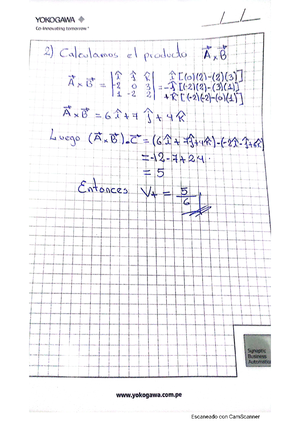 YOKOGAWA
Co-innovating tomorrow™
/ /
2) Calculamos el producto A⃗xB⃗
A⃗xB⃗ = | î ĵ k̂ | = î[(0)(2)-(-2)(3)]
| -2 0 3 | = -ĵ[(-2)(2)-(3)(1)]
| 1 -2 2 | + k̂[(-2)(-2)-(0)(1)]
A⃗xB⃗ = 6î+7ĵ+4k̂
Luego (A⃗xB⃗).C⃗ = (6î+7ĵ+4k̂)·(-2î-ĵ+6k̂)
= -12-7+24
= 5
Entonces V₊ = 5/6
Synaptic
Business
Automation
www.yokogawa.com.pe
Escaneado con CamScanner